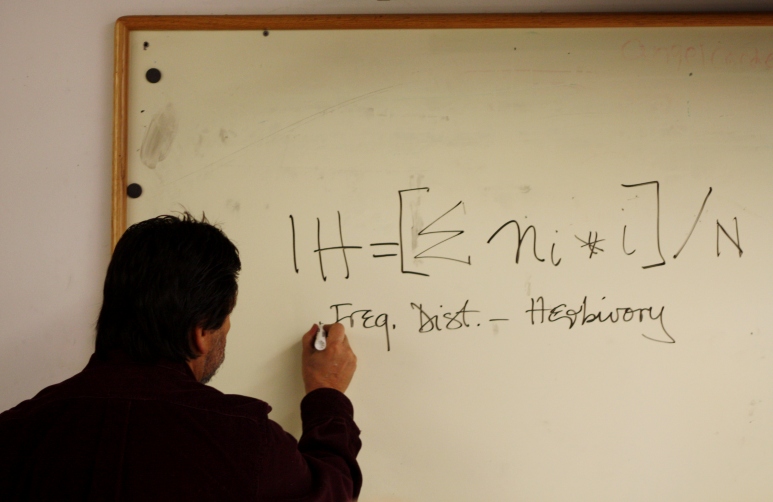 IH = [Σ ni * i] / N
Freq. Dist. – Herbivory